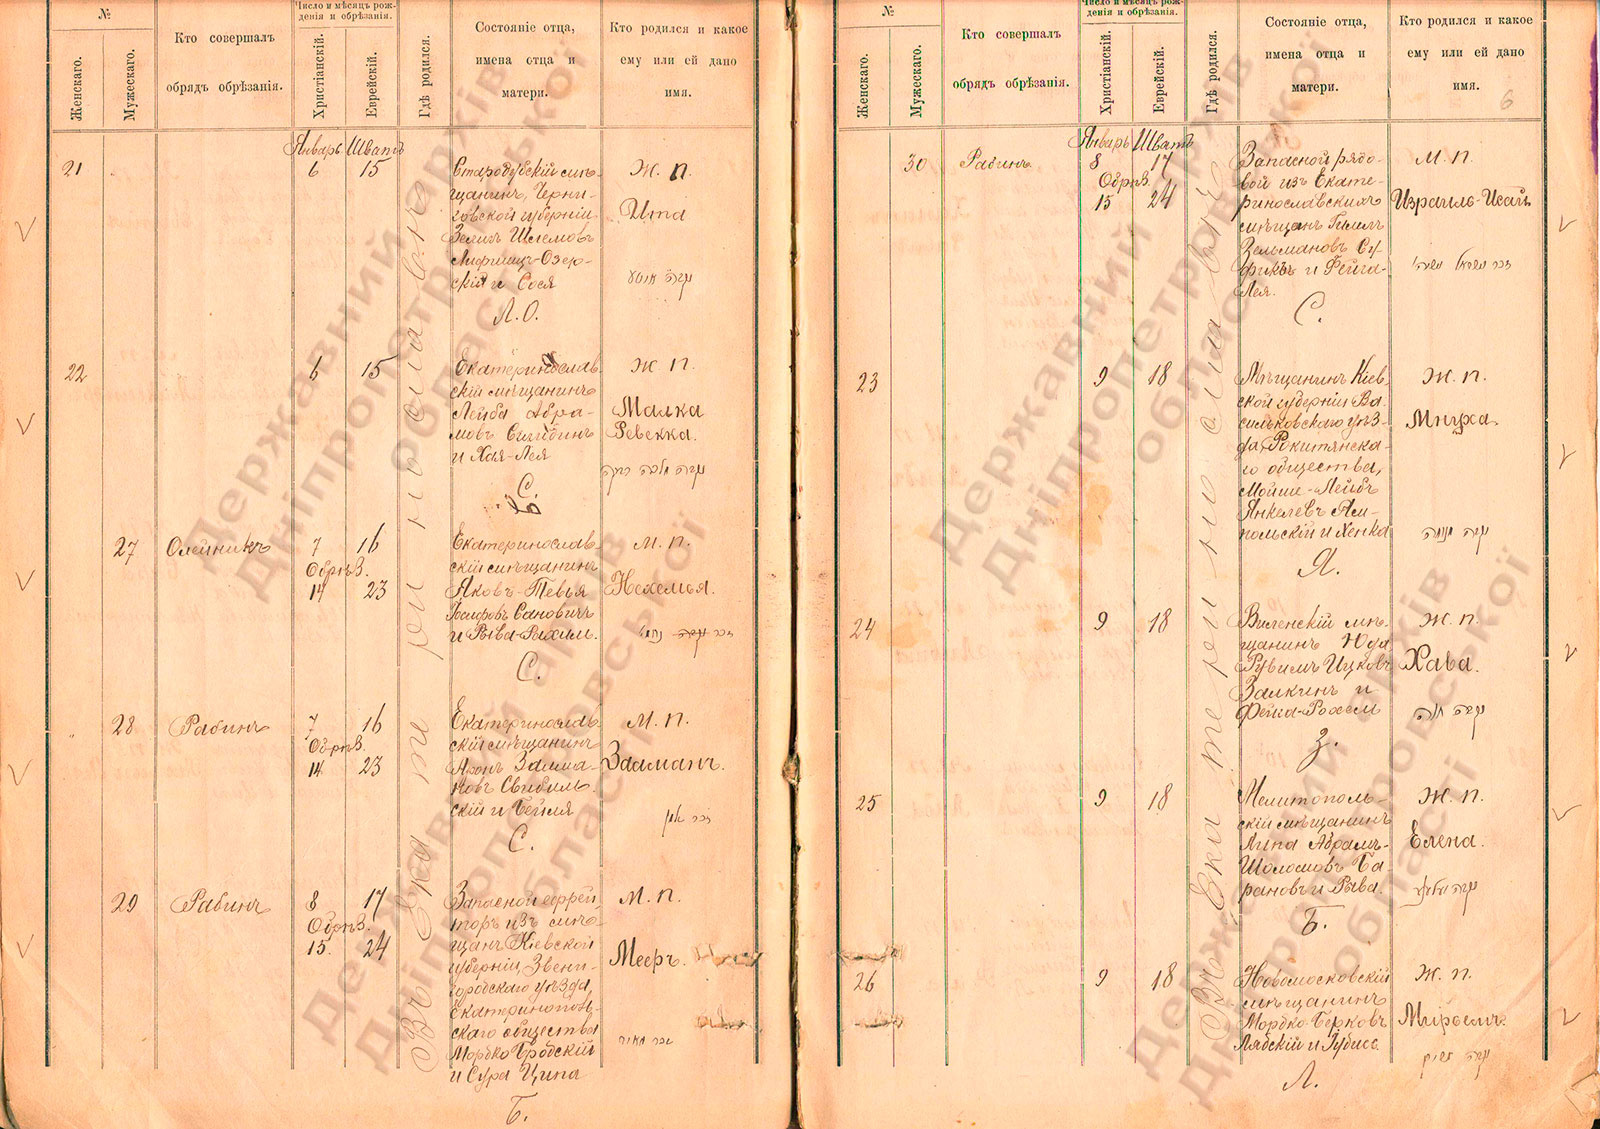 №
Женскаго.
Мужескаго.
Кто совершалъ
обрядъ обрѣзанія.
Число и мѣсяцъ рож-
денія и обрѣзанія.
Христіанскій.
Еврейскій.
Гдѣ родился.
Состояніе отца,
имена отца и
матери.
Кто родился и какое
ему или ей дано
имя.
Январь Шватъ
21
6 15
Стародубскій мѣ-
щанинъ, Черни-
говской губерніи
Зелигъ Шлемовъ
Лифшиц-Озер-
скій и Сося
Л.О.
Ж. П.
Ита
22
6 15
Екатеринослав-
скій мѣщанинъ
Лейба Абра-
мовъ
и Хая-Лея
С.
Ж. П.
Малка
Ревекка.
27
Олейникъ
7 16
Обрѣз.
14 23
Екатеринослав-
скій мѣщанинъ
Яковъ-Тевья
Іосифовъ Сановичъ
и Рыва-Рахиль.
С.
М. П.
Нехемья.
28
Рабинъ
7 16
Обрѣз.
14 23
Екатеринослав-
скій мѣщанинъ
Аронъ Залма-
новъ Свибиль-
скій и Бейля
С.
М. П.
Залманъ.
29
Рабинъ
8 17
Обрѣз.
15. 24
Запасной ефрей-
торъ изъ мѣ-
щанъ Кіевской
губерніи, Звени-
городскаго уѣзда,
Екатеринополь-
скаго общества
Мордко Бродскій
и Сура Ципа
Б.
М. П.
Мееръ.
Въ Екатеринославѣ
№
Женскаго.
Мужескаго.
Кто совершалъ
обрядъ обрѣзанія.
Число и мѣсяцъ рож-
денія и обрѣзанія.
Христіанскій.
Еврейскій.
Гдѣ родился.
Состояніе отца,
имена отца и
матери.
Кто родился и какое
ему или ей дано
имя.
6
Январь Шватъ
30
Рабинъ
8 17
Обрѣз.
15 24
Запасной рядо-
вой изъ Екате-
ринославскихъ
мѣщанъ Гилель
Зельмановъ
и Фейга-
Лея.
С.
М. П.
Израиль-Исай
23
9 18
Мѣщанинъ Кіев-
ской губерніи Ва-
сильковскаго уѣз-
да, Рокитянска-
го общества,
Мойше-Лейбъ
Янкелевъ Ям-
польскій и Хенка
Я.
Ж. П.
Мнуха
24
9 18
Виленскій мѣ-
щанинъ Юда
Рувимъ Ицковъ
Залкинъ и
Фейга-Рохель
З.
Ж. П.
Хава.
25
9 18
Мелитополь-
скій мѣщанинъ
Липа Абрамъ-
Шоломовъ Ба-
рановъ и Рыва.
Б.
Ж. П.
Елена.
26
9 18
Новомосковскій
мѣщанинъ
Мордко Берковъ
Лядскій и Гудиса
Л.
Ж. П.
Миріемъ.
Въ Екатеринославѣ
Державний архів
Дніпропетровської
області